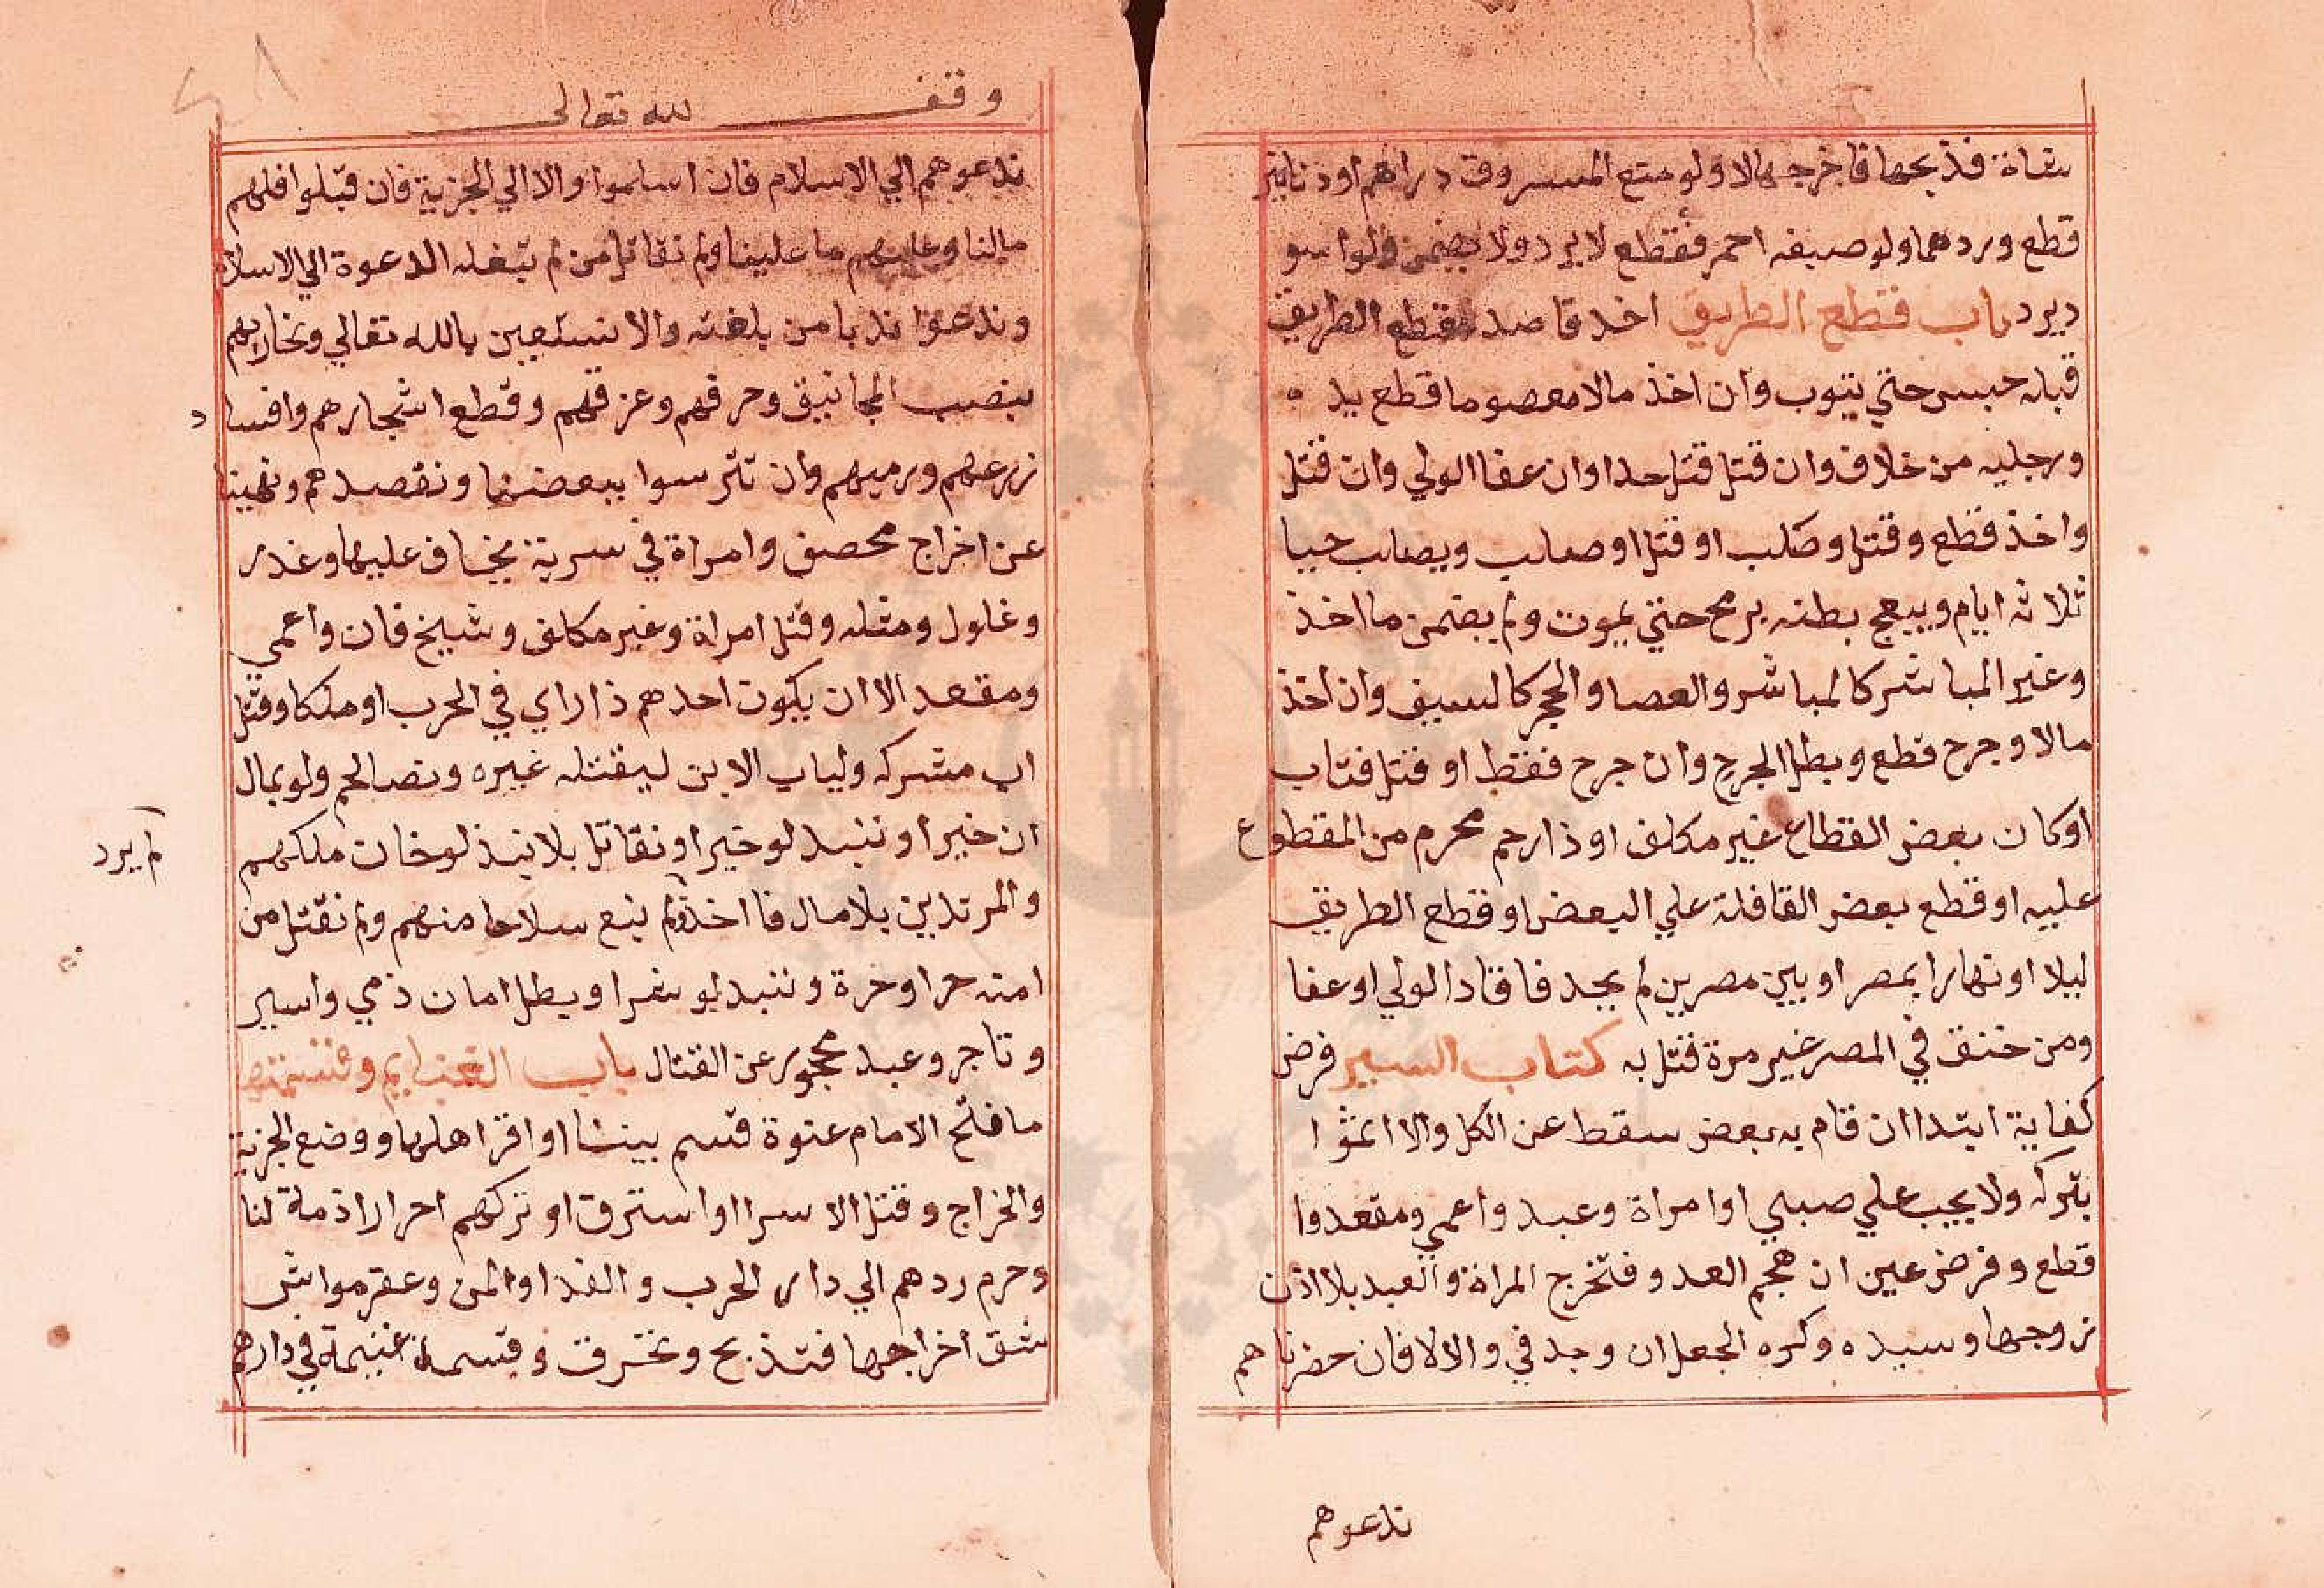 شاة فذبحها فاخرجها لا ولو صنع المسروق دراهم او دنانير
قطع وردهما ولو صبغه احمر فقطع لا يرد ولا يضمن ولو اسو
د يرد باب قطع الطريق اخذ قاصد قطع الطريق
قبله حبس حتي يتوب وان اخذ مالا معصوما قطع يده
ورجليه من خلاف وان قتل قتل حدا وان عفا الولي وان قتل
واخذ قطع وقتل وصلب او قتل او صلب ويصلب حيا
ثلاثه ايام ويبعج بطنه برمح حتي يموت ولم يضمن ما اخذ
وغير المباشر كالمباشر والعصا والحجر كالسيف وان اخذ
مالا وجرح قطع وبطل الجرح وان جرح فقط او قتل فتاب
او كان بعض القطاع غير مكلف او ذا رحم محرم من المقطوع
عليه او قطع بعض القافلة علي البعض او قطع الطريق
ليلا او نهارا بمصر او بين مصرين لم يحد فاقاد الولي او عفا
ومن خنق في المصر غير مرة قتل به كتاب السير فرض
كفاية ابتدا ان قام به بعض سقط عن الكل والا اثموا
بتركه ولا يجب علي صبي او امراة وعبد واعمي ومقعد وا
قطع وفرض عين ان هجم العدو فتخرج المراة والعبد بلا اذن
زوجها وسيده وكره الجعل ان وجد في والا لا فان حضرناهم
ندعوهم
وقف لله تعالى
ندعوهم الي الاسلام فان اسلموا والا الي الجزية فان قبلوا فلهم
مالنا وعليهم ما علينا ولم نقاتل من لم تبغله الدعوة الي الاسلا
وندعوا ندبا من بلغته والا نستعين بالله تعالي ونحاربهم
بنصب المجانيق وحرقهم وغرقهم وقطع اشجارهم وافسا د
زرعهم ورميهم وان تترسوا ببعضنا ونقصدهم ونهينا
عن اخراج مصحف وامراة في سرية يخاف عليها وغدر
وغلول ومثله وقتل امراة وغير مكلف وشيخ فان واعمي
ومقعد الا ان يكون احدهم ذا راي في الحرب او ملكا وقتل
اب مشرك ولياب الابن ليقتله غيره ونصالحم ولو بمال
ان خيرا وننبد لو خيرا ونقاتل بلا نبذ لو خان ملكهم
والمرتدين بلا مال فا اخذ ولم نبع سلاحا منهم ولم نقتل من
لم يرد
امنه حر او حرة وننبد لو شرا وبطل امان ذمي واسير
وتاجر وعبد محجور عن القتال باب الغنايم وقسمتها
ما فتح الامام عنوة قسم بيننا او اقر اهلها ووضع الجزية
والخراج وقتل الاسرا او استرق او تركهم احرارا ذمة لنا
وحرم ردهم الي دار الحرب والفدا والمن وعقر مواش
شق اخراجها فتذبح وتحرق وقسمة غنيمة في دارهم